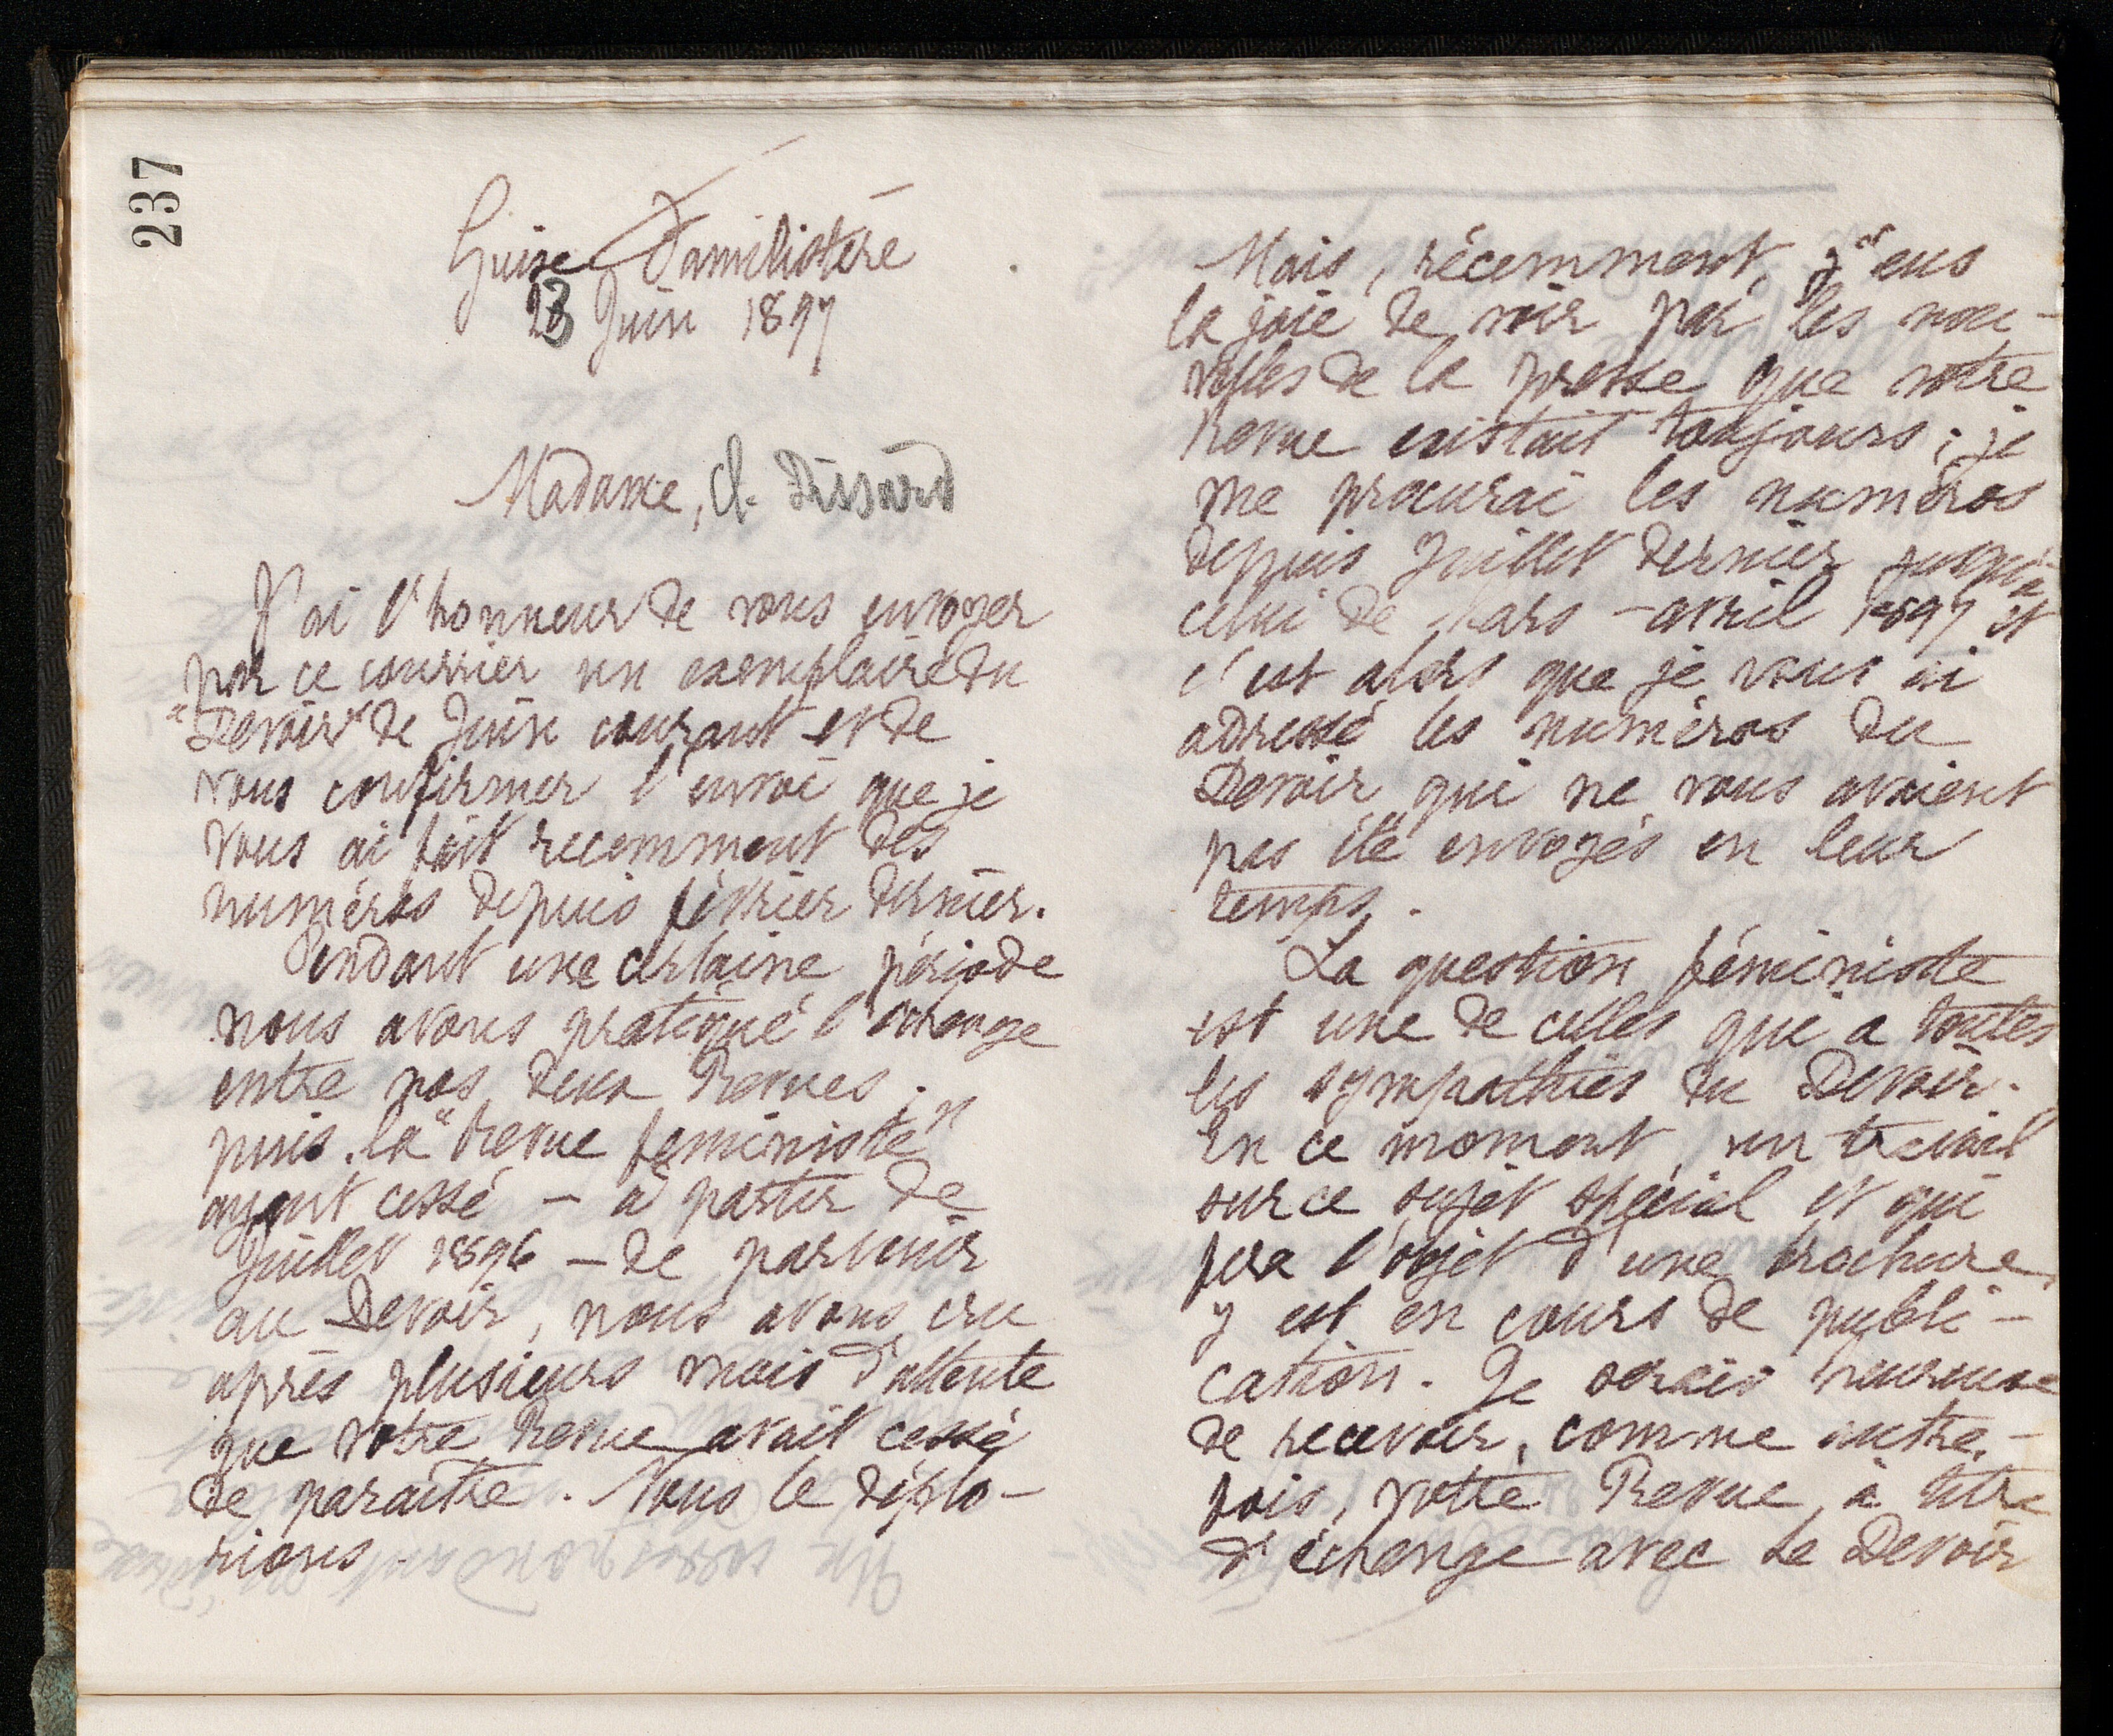 237
Guise Familistère
23 Juin 1897
Madame, Cl. Dissard
J'ai l'honneur de vous envoyer
par ce courrier un exemplaire du
"Devoir" de Juin courant et de
vous confirmer l'envoi que je
vous ai fait recemment des
numéros depuis février dernier.
Pendant une certaine période
nous avons pratiqué l'échange
entre nos deux Revues ;
puis la "Revue feministe"
ayant cessé - à partir de
Juillet 1896 - de parvenir
au Devoir, nous avons cru
après plusieurs mois d'attente
que votre Revue avait cessé
de paraître. Nous le déplo-
rions.
Mais, récemment, j'eus
la joie de voir par les nou-
velles de la presse que votre
Revue existait toujours ; je
me procurai les numéros
depuis Juillet dernier jusqu'à
celui de Mars - avril 1897 et
c'est alors que je vous ai
adressé les numéros du
Devoir qui ne vous avaient
pas été envoyés en leur
temps.
La question féministe
est une de celles qui a toutes
les sympathies du Devoir.
En ce moment, un travail
sur ce sujet spécial et qui
fera l'objet d'une brochure,
y est en cours de publi-
cation. Je serais heureuse
de recevoir, comme autre-
fois, votre Revue, à titre
d'échange avec le Devoir